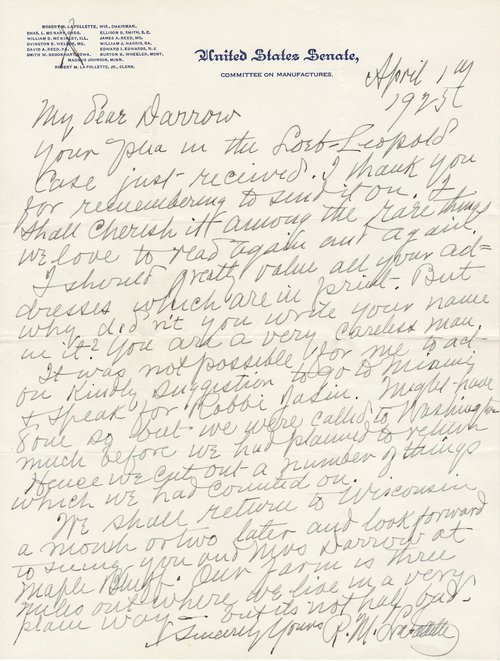 ROBERT M. LA FOLLETTE, WIS., CHAIRMAN.
CHAS. L. MCNARY, OREG. ELLISON D. SMITH, S. C.
WILLIAM B. MCKINLEY, ILL. JAMES A. REED, MO.
OVINGTON E. WELLER, MD. WILLIAM J. HARRIS, GA.
DAVID A. REED, PA. EDWARD I. EDWARDS, N. J.
SMITH W. BROOKHART, IOWA. BURTON K. WHEELER, MONT.
MAGNUS JOHNSON, MINN.
ROBERT M. LA FOLLETTE, JR., CLERK.
United States Senate,
COMMITTEE ON MANUFACTURES.
April 1st
1925
My dear Darrow
Your plea in the Loeb-Leopold
Case just received. I thank you
for remembering to send it on. I
shall cherish it among the rare things
we love to read again and again.
I should greatly value all your ad-
dresses which are in print. But
why didn't you write your name
in it? You are a very careless man.
It was not possible for me to act
on kindly suggestion to go to Miami
& speak for Rabbi Jasin. Might have
done so but we were called to Washington
much before we had planned to return
Hence we cut out a number of things
which we had counted on.
We shall return to Wisconsin
a month or two later and look forward
to seeing you and Mrs Darrow at
Maple Bluff. Our farm is three
miles out where we live in a very
plain way - but its not half bad.
Sincerely Yours R. M. La Follette